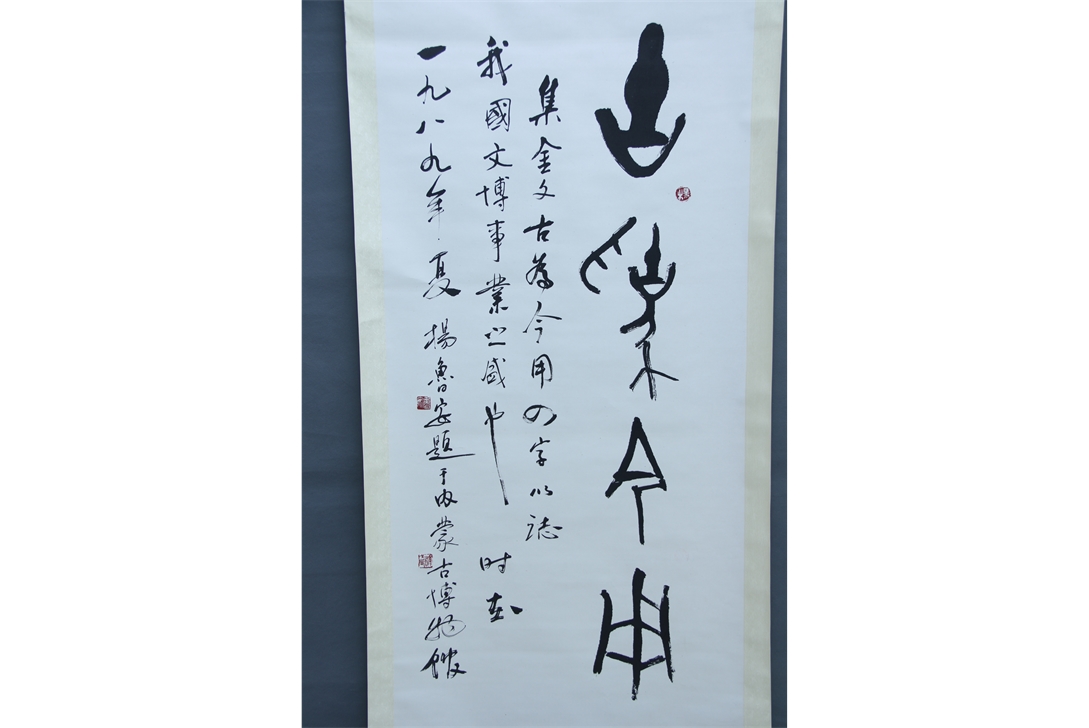 古為今用
集金文古為今用四字以誌
我國文博事業之盛也 时在
一九八九年夏 楊魯安題于內蒙古博物館